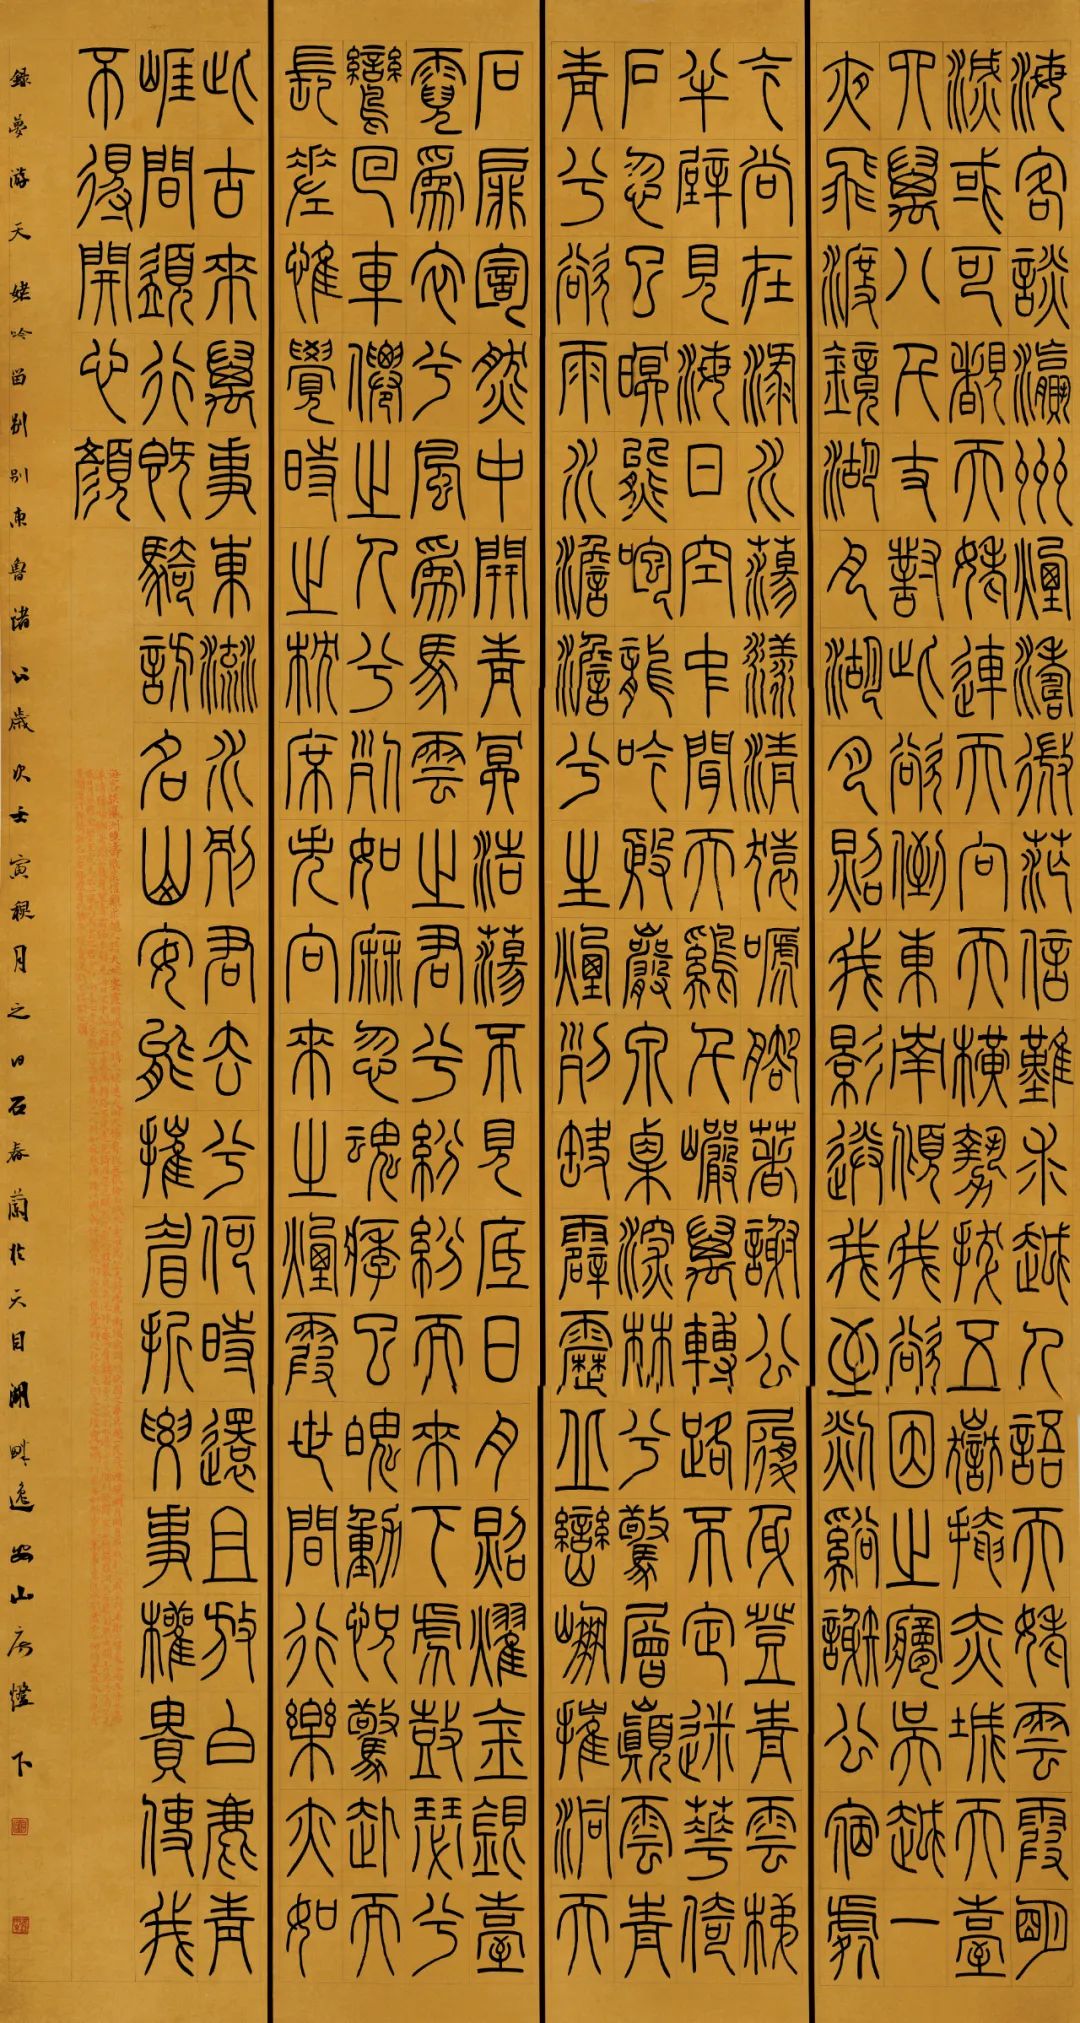 海客談瀛州煙濤微茫信難求越人語天姥雲霞明
滅或可覩天姥連天向天橫勢拔五嶽掩赤城天臺
四萬八千丈對此欲倒東南傾我欲因之夢吳越一
夜飛渡鏡湖月湖月照我影送我至剡谿謝公宿處
今尚在淥水蕩漾清猿啼腳著謝公屐身登青雲梯
半壁見海日空中聞天雞千巖萬轉路不定迷華倚
石忽已暝熊咆龍吟殷巖泉慄深林兮驚層巔雲青
青兮欲雨水澹澹兮生煙列缺霹靂丘巒崩摧洞天
石扉訇然中開青冥浩蕩不見底日月照耀金銀臺
霓爲衣兮風爲馬雲之君兮紛紛而來下虎鼓瑟兮
鸞回車僊之人兮列如麻忽魂悸已魄動怳驚起而
長嗟惟覺時之枕席失向來之煙霞世間行樂亦如
此古來萬事東流水別君去兮何時還且放白鹿青
崖間須行既騎訪名山安能摧眉折腰事權貴使我
不得開心顏
録夢游天姥吟留别别東魯諸公歲次壬寅穐月之日石春蘭於天目湖畔逸安山房燈下